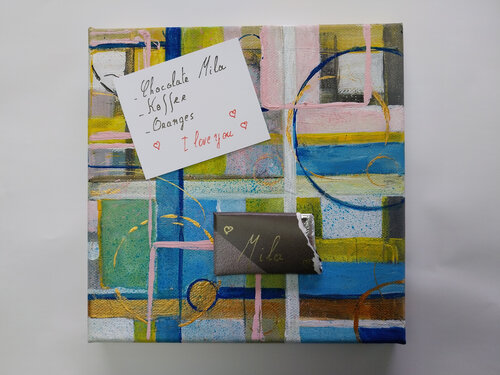 - Chocolate Mila
- Kaffee
- Oranges
I love you
Mila